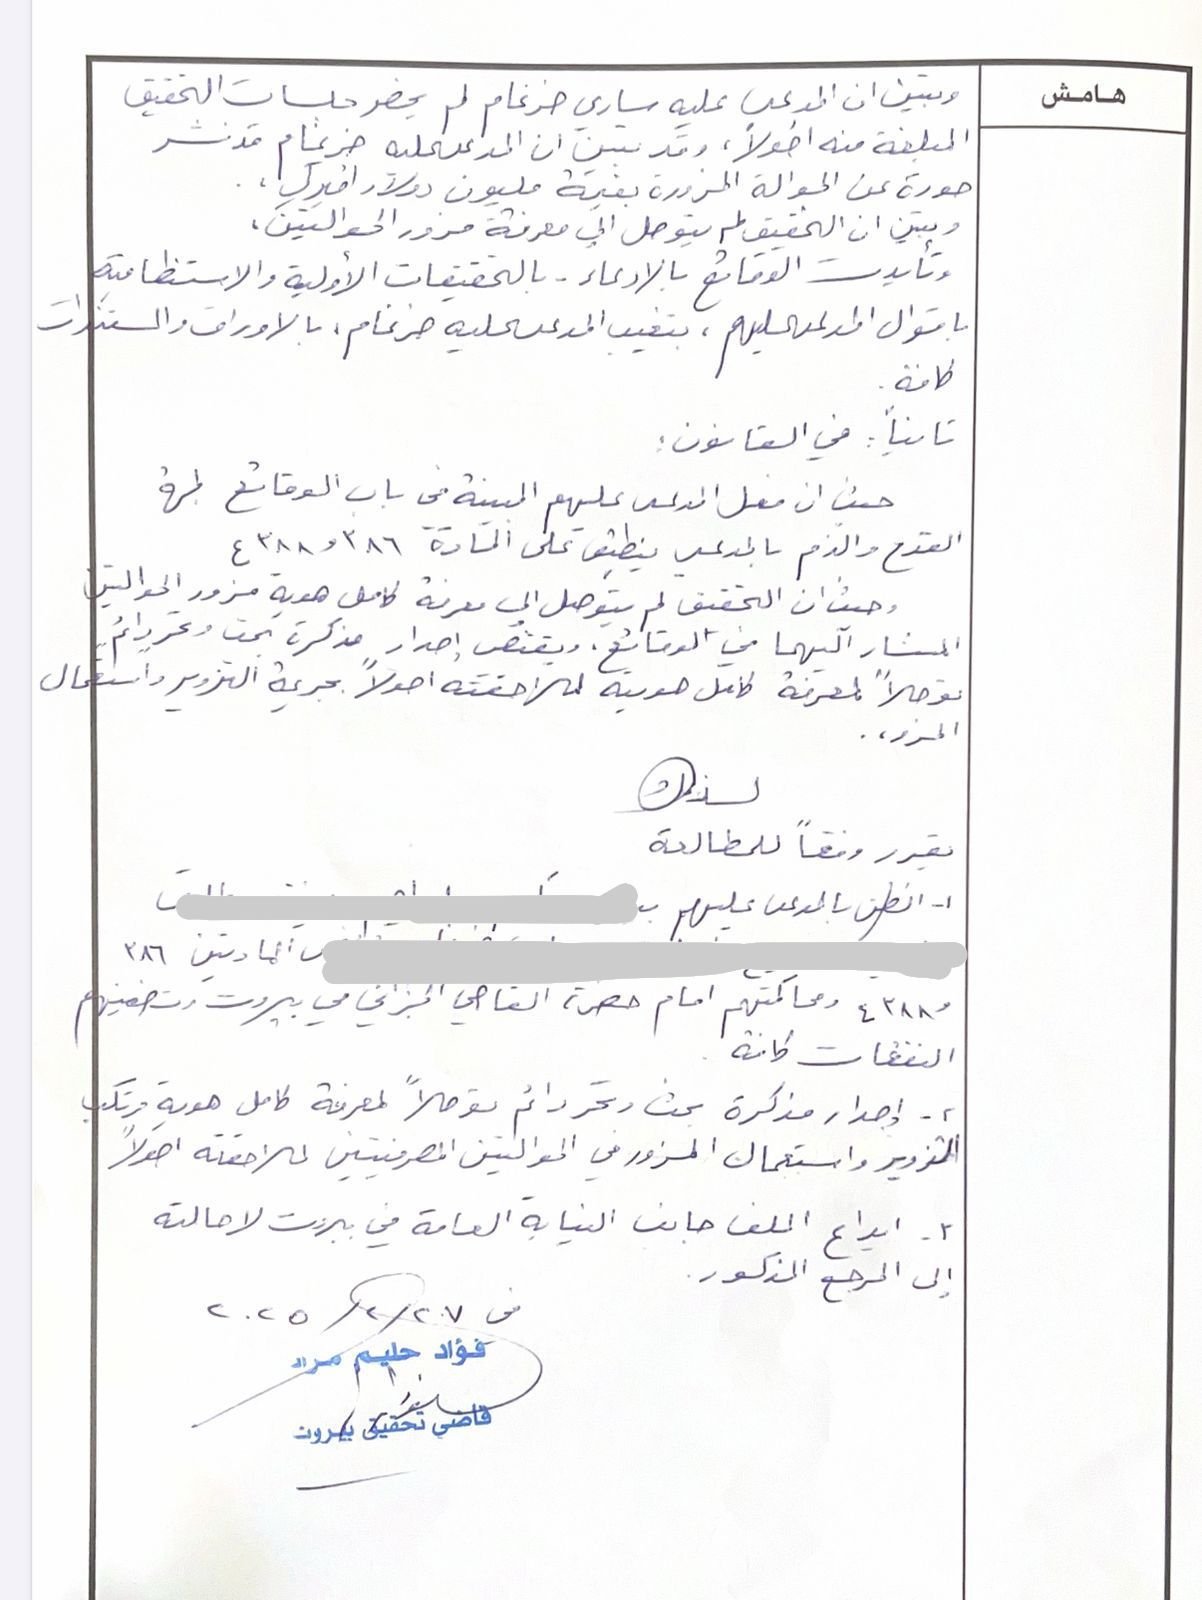 هامش
وتبين ان المدعى عليه ساري ضرغام لم يحضر جلسات التحقيق
المبلغة منه اصولاً، وقد تبين ان المدعى عليه ضرغام قد نشر
صورة عن الحوالة المزورة بقيمة مليون دولار اميركي،.
وتبين ان التحقيق لم يتوصل الى معرفة مزور الحوالتين،
وتأيدت الوقائع بالادعاء - بالتحقيقات الأولية والاستنطاقية
باقوال المدعى عليهم، بتغيب المدعى عليه ضرغام، بالاوراق والمستندات
كافة.
ثانياً: في القانون:
حيث ان فعل المدعى عليهم المبينة في باب الوقائع لجهة
القدح والذم بالمدعي ينطبق على المادة ٣٨٦ و ٣٨٨ ع
وحيث ان التحقيق لم يتوصل الى معرفة كامل هوية مزور الحوالتين
المشار اليهما في الوقائع، ويقتضي إصدار مذكرة بحث وتحرٍ دائم
توصلاً لمعرفة كامل هويته لملاحقته اصولاً بجريمة التزوير واستعمال
المزور،.
لذلك
يقرر وفقاً للمطالعة
١- الظن بالمدعى عليهم
المادتين ٣٨٦
و٣٨٨ ع ومحاكمتهم امام حضرة القاضي الجزائي في بيروت وتضمينهم
النفقات كافة.
٢- إصدار مذكرة بحث وتحرٍ دائم توصلاً لمعرفة كامل هوية مرتكب
التزوير واستعمال المزور في الحوالتين المصرفيتين لملاحقته اصولاً
٣- ايداع الملف جانب النيابة العامة في بيروت لاحالته
إلى المرجع المذكور.
في ٢٠٢٥
فؤاد حليم مراد
قاضي تحقيق بيروت